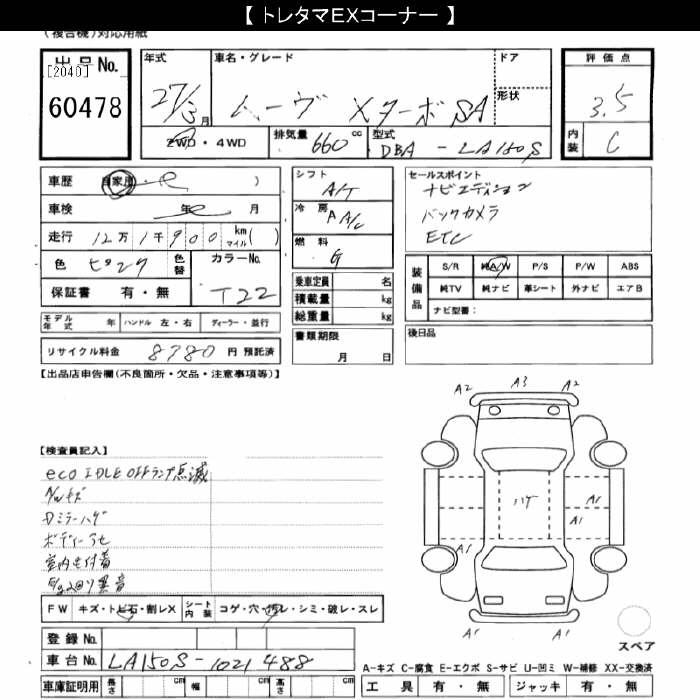 【 トレタマEXコーナー 】
(複合機)対応用紙
出品No.
[2040]
60478
年式 車名・グレード ドア 評価点
27/3月 ムーヴ Xターボ SA 形状 3.5
2WD・4WD 排気量 660cc 型式 DBA - LA150S 内装 C
車歴 自家用 )
車検 年 月
走行 12万1千900 km マイル( )
色 ピンク 色替 カラーNo. T22
保証書 有・無
モデル年式 年 ハンドル 左・右 ディーラー・並行
リサイクル料金 8780 円 預託済
シフト A/T
冷房 A A/C
燃料 G
乗車定員 名
積載量 kg
総重量 kg
書類期限
月 日
セールスポイント
ナビエディション
バックカメラ
ETC
装備品 S/R 純A/W P/S P/W ABS
純TV 純ナビ 革シート 外ナビ エアB
ナビ型番:
後日品
【出品店申告欄(不良箇所・欠品・注意事項等)】
【検査員記入】
eco IDLE OFFランプ点滅
A/Wキズ
Dミラーハゲ
ボディーアセ
室内モ付着
FW キズ・トビ石・割レX シート内装 コゲ・穴・スレ・シミ・破レ・スレ
登録No.
車台No. LA150S-1021488
車庫証明用 長さ cm 幅 cm 高さ cm
A2 A3 A2
ハゲ
A1
A1
A1
A1 A1
スペア
A-キズ C-腐食 E-エクボ S-サビ U-凹ミ W-補修 XX-交換済
工具 有・無 ジャッキ 有・無